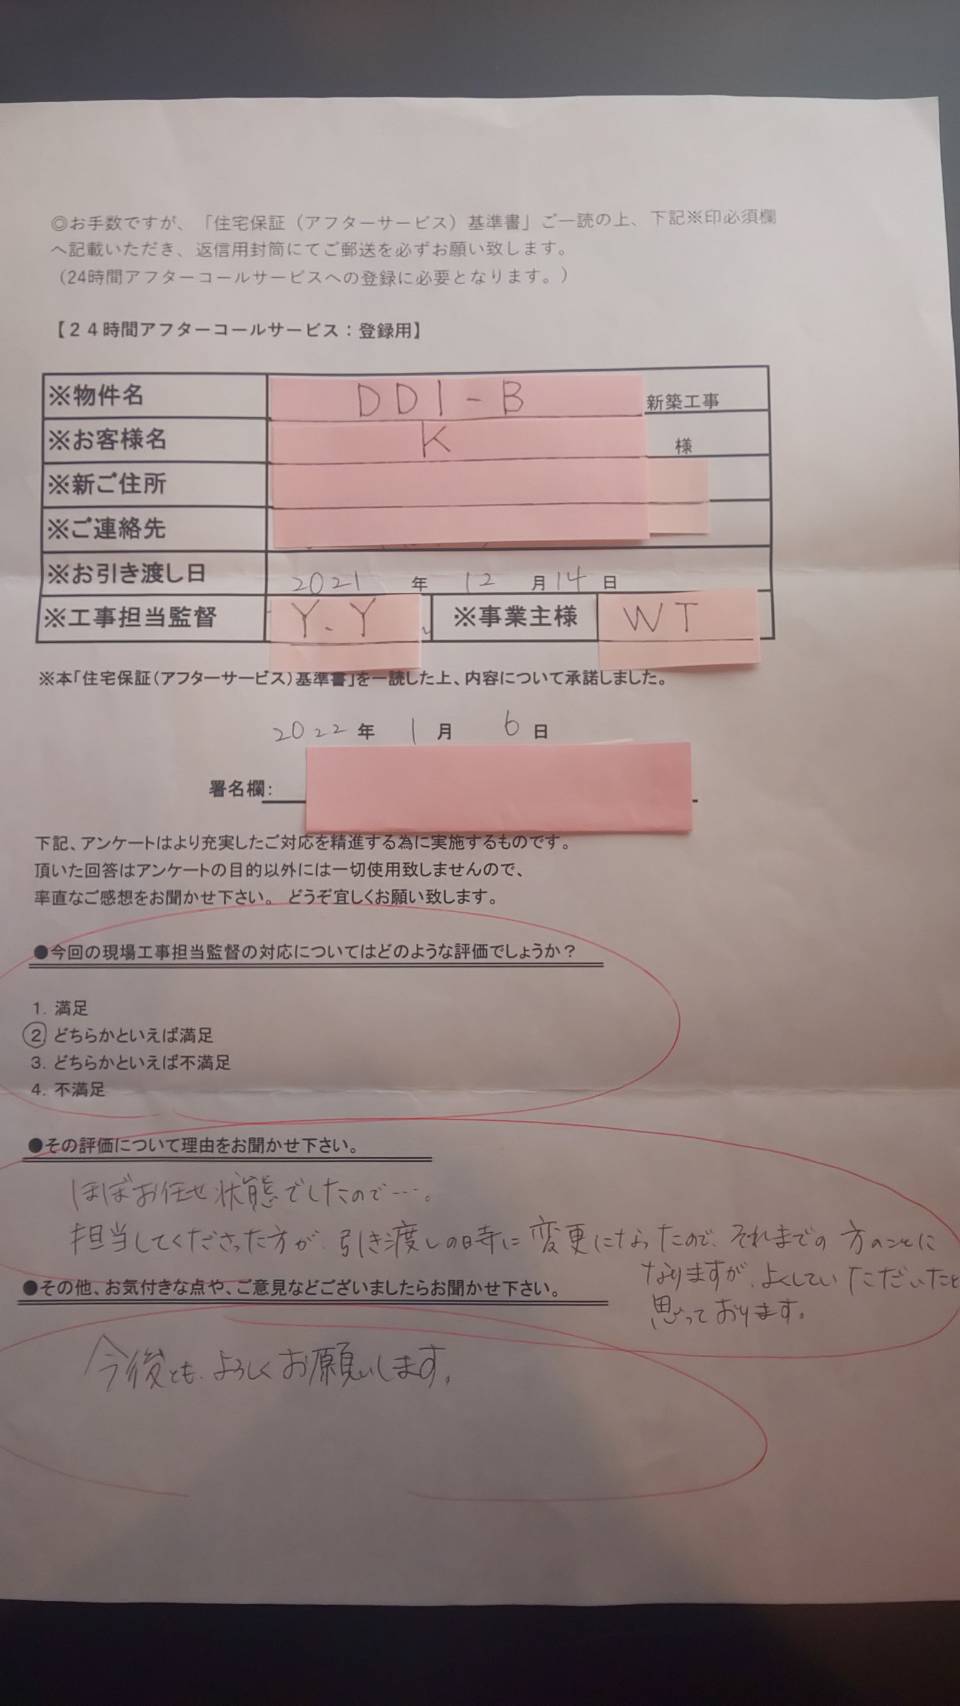 ◎お手数ですが、「住宅保証（アフターサービス）基準書」ご一読の上、下記※印必須欄
へ記載いただき、返信用封筒にてご郵送を必ずお願い致します。
（24時間アフターコールサービスへの登録に必要となります。）
【２４時間アフターコールサービス：登録用】
※物件名 DD1-B 新築工事
※お客様名 K 様
※新ご住所
※ご連絡先
※お引き渡し日 2021 年 12 月 14 日
※工事担当監督 Y.Y ※事業主様 WT
※本「住宅保証（アフターサービス）基準書」を一読した上、内容について承諾しました。
2022 年 1 月 6 日
署名欄：
下記、アンケートはより充実したご対応を精進する為に実施するものです。
頂いた回答はアンケートの目的以外には一切使用致しませんので、
率直なご感想をお聞かせ下さい。 どうぞ宜しくお願い致します。
●今回の現場工事担当監督の対応についてはどのような評価でしょうか？
1. 満足
② どちらかといえば満足
3. どちらかといえば不満足
4. 不満足
●その評価について理由をお聞かせ下さい。
ほぼお任せ状態でしたので…。
担当してくださった方が、引き渡しの時に変更になったので、それまでの方のことに
なりますが、よくしていただいたと
思っております。
●その他、お気付きな点や、ご意見などございましたらお聞かせ下さい。
今後とも、よろしくお願いします。